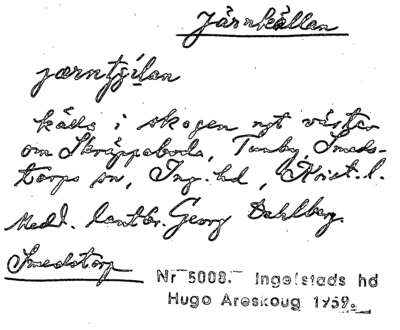 Järnkällan
jærntȷi̯lan
källa i skogen nyt väster
om Skräppeboda, Tunby, Smeds-
torps sn, Ing. hd, Krist. l.
Medd. lantbr. Georg Dahlberg.
Smedstorp
Nr 5008. Ingelstads hd
Hugo Areskoug 1959.